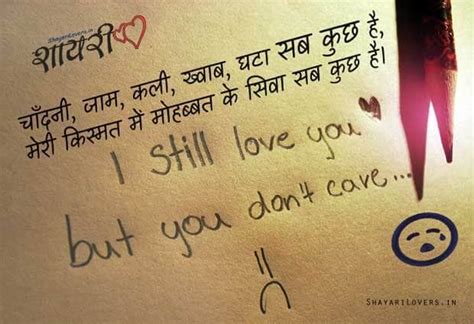 ShayariLovers.in
शायरी
चाँदनी, जाम, कली, ख्वाब, घटा सब कुछ है,
मेरी किस्मत में मोहब्बत के सिवा सब कुछ है।
I still love you
but you don't care...
=(
SHAYARILOVERS.IN